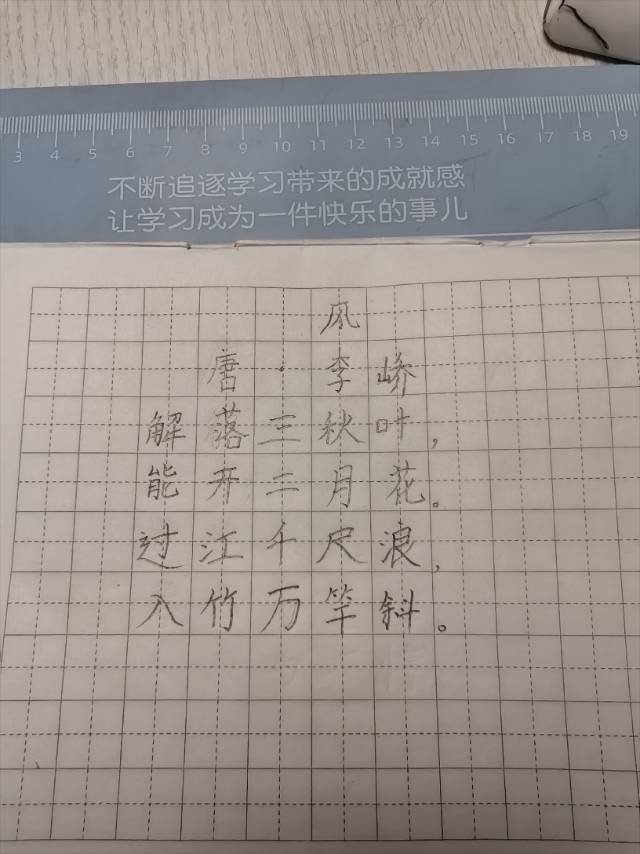 3 4 5 6 7 8 9 10 11 12 13 14 15 16 17 18 19
不断追逐学习带来的成就感
让学习成为一件快乐的事儿
风
唐·李峤
解落三秋叶，
能开二月花。
过江千尺浪，
入竹万竿斜。